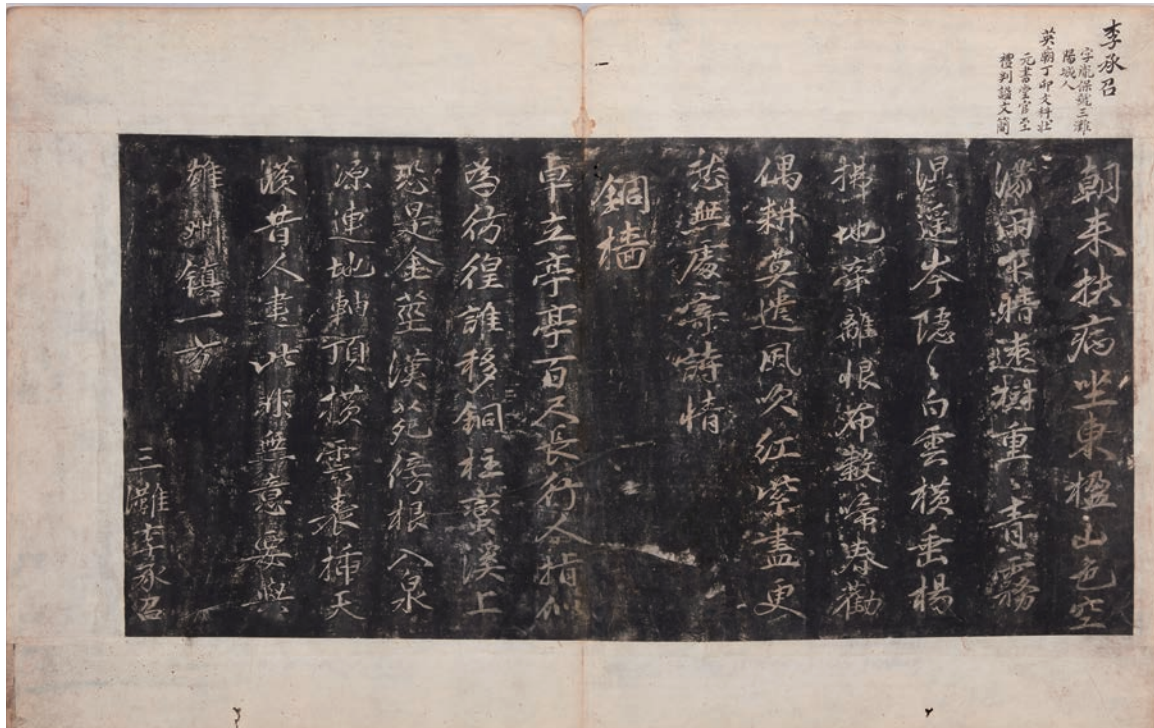 李承召
字胤保號三灘
陽城人
英廟丁卯文科壯
元書堂官至
禮判諡文簡
朝来扶病坐東楹山色空
濛雨不晴遠樹重〻青霧
濕遥岑隱〻白雲横垂楊
掃地牽離恨布穀啼春勸
偶耕莫遣風吹紅紫盡更
愁無處詩情
銅檣
卓立亭亭百尺長行人指似
為彷徨誰移銅柱蠻溪上
恐是金莖漢苑傍根入泉
源連地軸頂横雲表揷天
潢昔人建此非無意要與
雄州鎮一方
三灘李承召